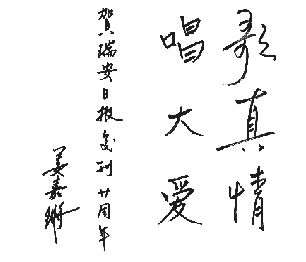 歌真情
唱大爱
賀瑞安日报复刊廿周年
姜嘉锵